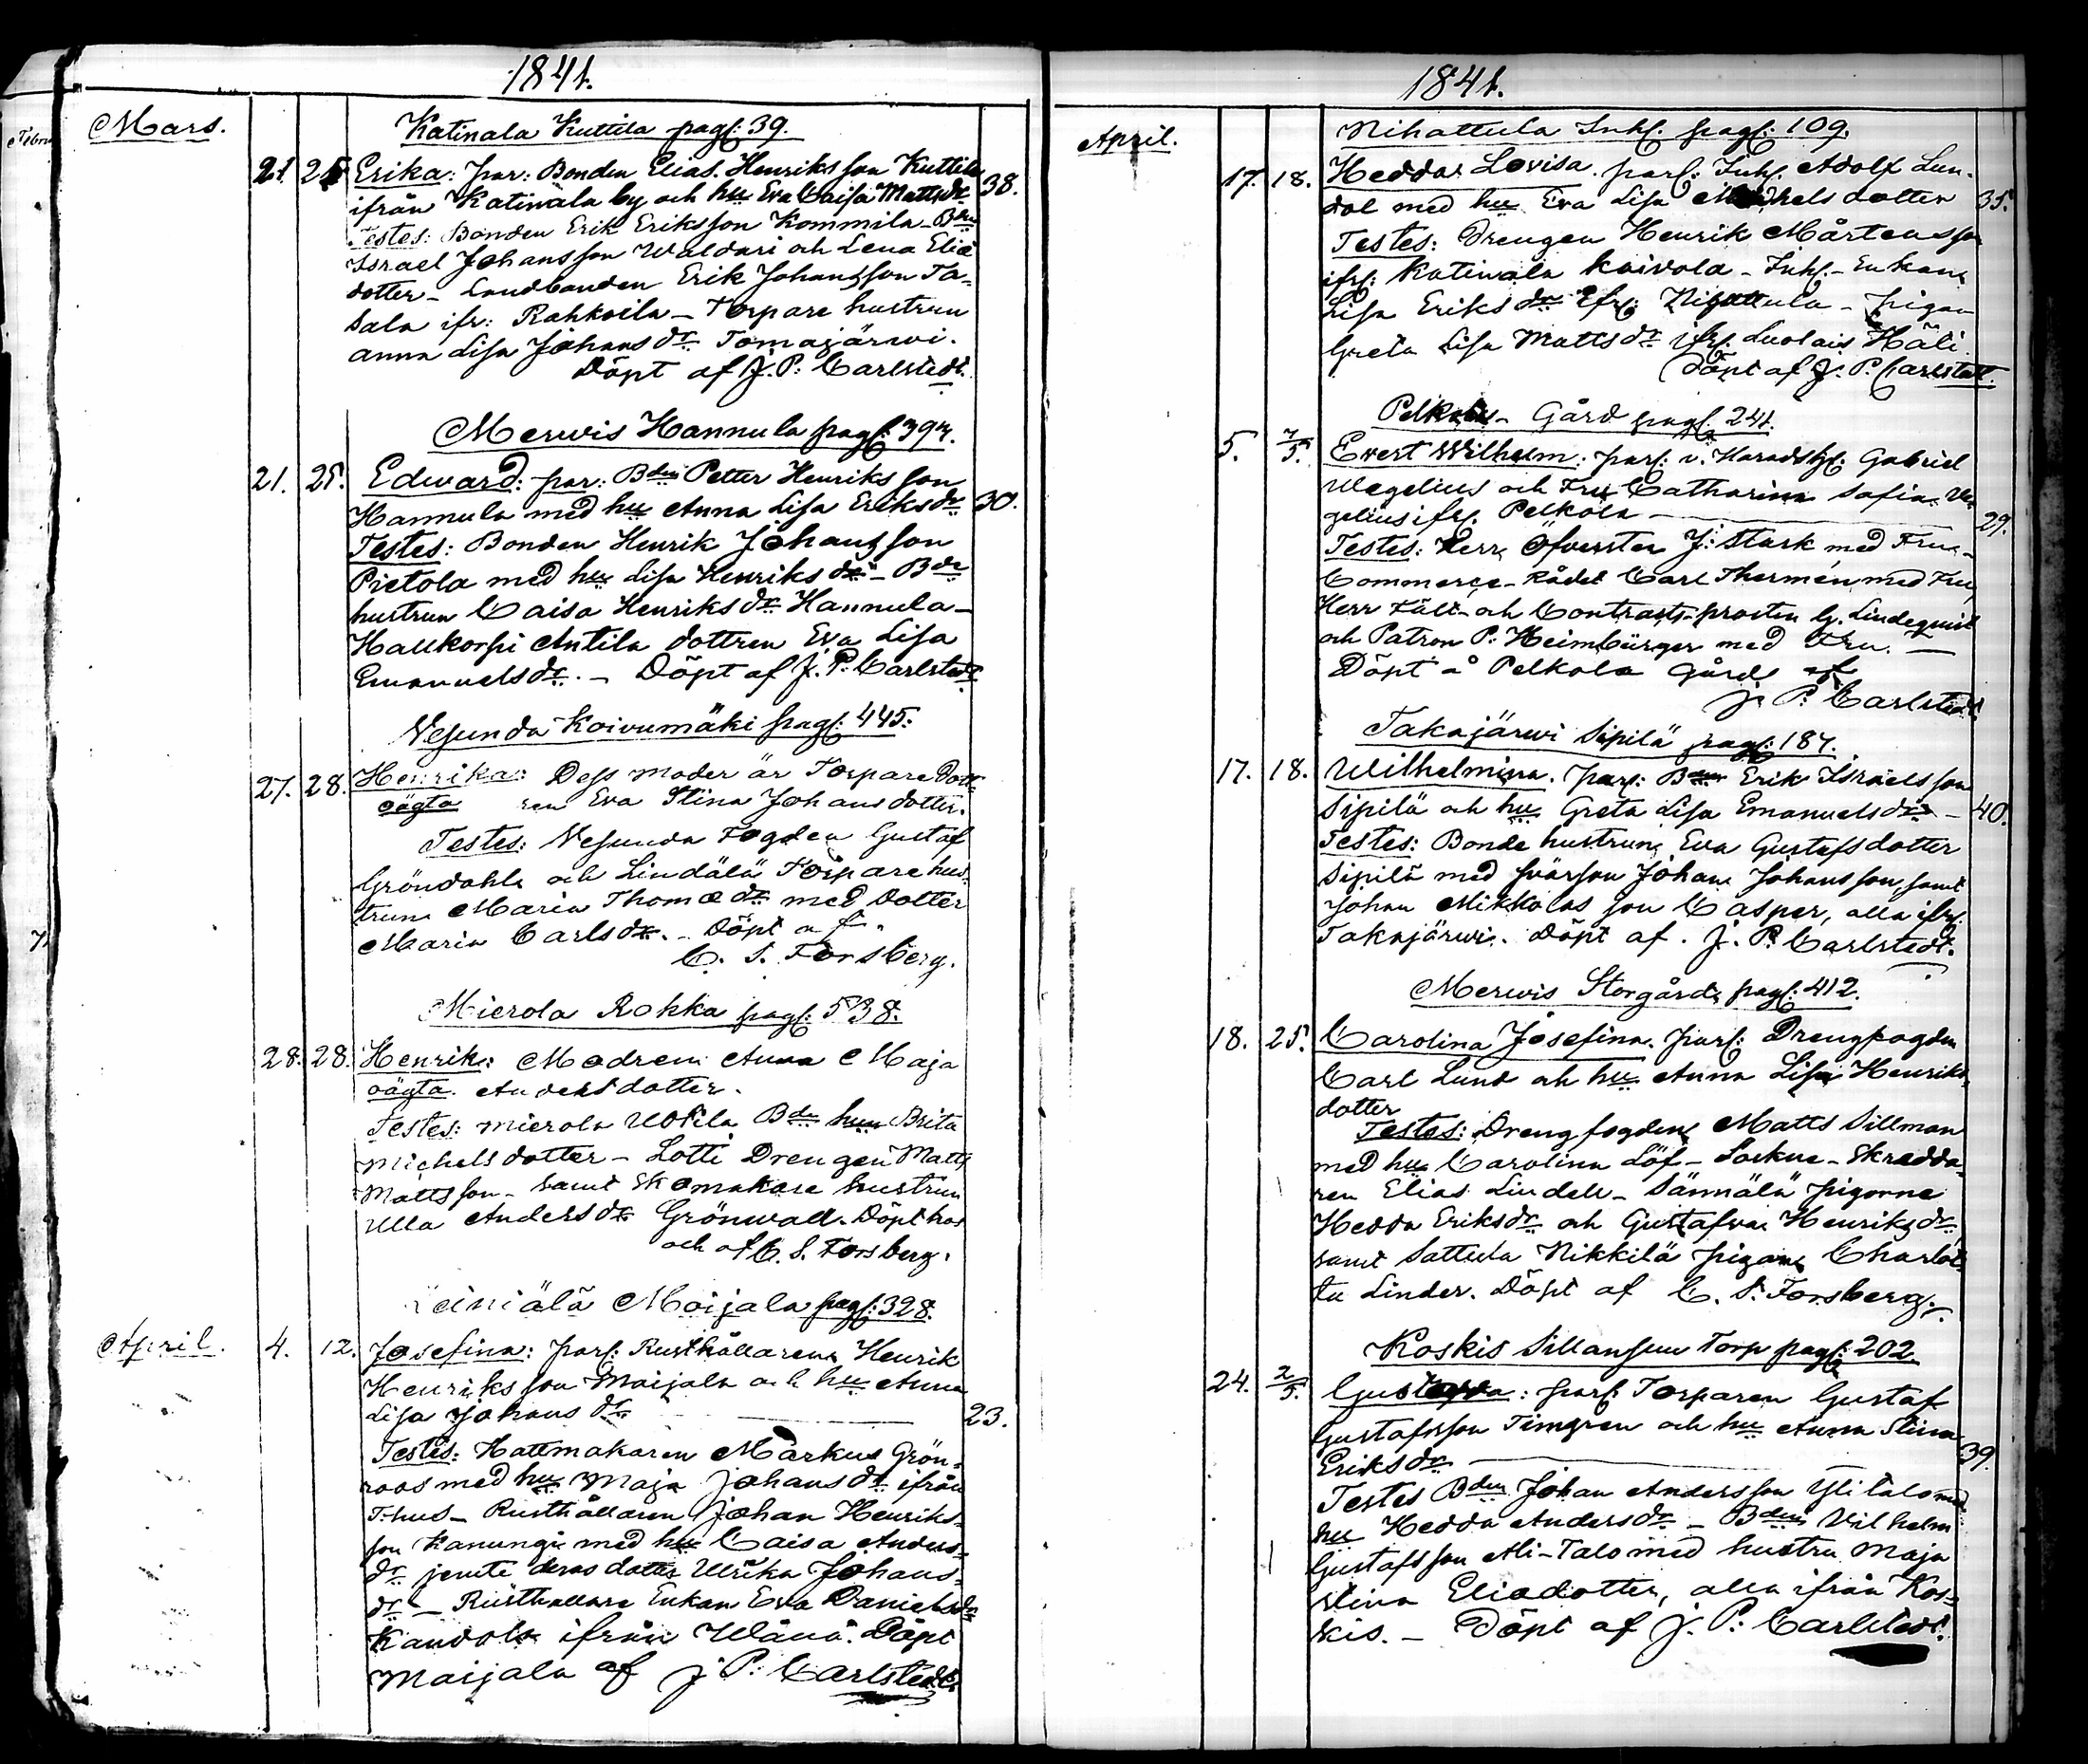 1841.
Mars.
Katinala Kuttila pag: 39.
21. 25 Erika: par: Bonden Elias Henriksson Kuttila 38.
ifrån Katinala by och hu Eva Caisa Matts dr
Testes: Bonden Erik Eriksson Kommila - Bdn
Israel Johansson Waldari och Lena Elia
dotter - Landbonden Erik Johansson Ta-
sala ifr: Rahkoila - Torpare hustrun
Anna Lisa Johans dr Tomajärwi.
Döpt af J. P. Carlstedt.
Merwis Hannula pag: 397.
21. 25. Edward: par: Bdn Petter Henriksson
Hannula med hu Anna Lisa Eriks dr 30.
Testes: Bonden Henrik Johansson
Pietola med hu Lisa Henriks dr - Bde
hustrun Caisa Henriks dr Hannula -
Hallkorpi Antila dottren Eva Lisa
Emanuels dr. - Döpt af J. P. Carlstedt
Nesunda Koivumäki pag: 445.
27. 28. Henrika: Dess moder är Torpare dott-
oägta ren Eva Stina Johansdotter.
Testes: Nesunda Fogden Gustaf
Gröndahl och Lindälä Torpare hus-
trun Maria Thomæ dr med dotter
Maria Carls dr. - Döpt af
C. S. Forsberg.
Mierola Rokka pag: 538.
28. 28. Henrik: Modren Anna Maja
oägta. Andersdotter.
Testes: Mierola Uotila Bde hun Brita
Michelsdotter - Lotti Drengen Matts
Mattsson - samt Skomakare hustrun
Ulla Anders dr Grönwall. Döpt hos
och af C. S. Forsberg.
Leiniälä Maijala pag: 328.
April. 4. 12. Josefina: par: Rusthållaren Henrik
Henriksson Maijala och hu Anna
Lisa Johans dr 23.
Testes: Hattmakaren Markus Grön-
roos med hu Maja Johans dr ifrån
T-hus - Rusthållaren Johan Henriks-
son Kanungi med hu Caisa Anders-
dr jemte deras dotter Ulrika Johans-
dr - Rusthållare Enkan Eva Daniels dr
Kandola ifrån Wånå. Döpt
Maijala af J. P. Carlstedt.
1841.
April.
Nihattula Inh. pag: 109.
17. 18. Hedda Lovisa. par: Inh. Adolf Lun-
dal med hu Eva Lisa Michelsdotter 35.
Testes: Drengen Henrik Mårtensson
ifr: Katinala Koivola - Inh. Enkan
Lisa Eriks dr ifr: Nihattula - pigan
Greta Lisa Matts dr ifr. Luolais Häli
Döpt af J. P. Carlstedt.
Pelkola - Gård pag: 241.
5. 7/5. Evert Wilhelm: par: v. Häradshf: Gabriel
Wegelius och Fru Catharina Sofia We-
gelius ifr. Pelkola 29.
Testes: Herr Öfversten J: Stark med Fru -
Commerce-Rådet Carl Thermén med Fru
Herr Fält- och Contracts-prosten G. Lindequist
och Patron P. Heimbürger med Fru. -
Döpt å Pelkola Gård af
J. P. Carlstedt.
Takajärwi Sipilä pag: 187.
17. 18. Wilhelmina. par: Bdn Erik Israelsson
Sipilä och hu Greta Lisa Emanuels dr - 40.
Testes: Bonde hustrun Eva Gustafsdotter
Sipilä med svärson Johan Johansson, samt
Johan Mikkolas son Casper, alla ifr.
Takajärwi. Döpt af. J. P. Carlstedt.
Merwis Storgård pag: 412.
18. 25. Carolina Josefina. par: Drengfogden
Carl Lund och hu Anna Lisa Henriks-
dotter
Testes: Drengfogden Matts Sillman
med hu Carolina Löf - Sorkue - Skredda-
ren Elias Lindell - Sännälä pigorne
Hedda Eriks dr och Gustafva Henriks dr
samt Sattula Nikkilä pigan Charlot-
ta Linder. Döpt af C. S. Forsberg.
Koskis Sillansuu Torp pag: 202.
24. 2/5. Gustafva: par: Torparen Gustaf
Gustafsson Timgren och hu Anna Stina
Eriks dr 39.
Testes Bdn Johan Andersson Ylitalo med
hu Hedda Anders dr - Bdn Vilhelm
Gustafsson Ali-Talo med hustru Maja
Stina Eliadotter, alla ifrån Kos-
kis. - Döpt af J. P. Carlstedt.